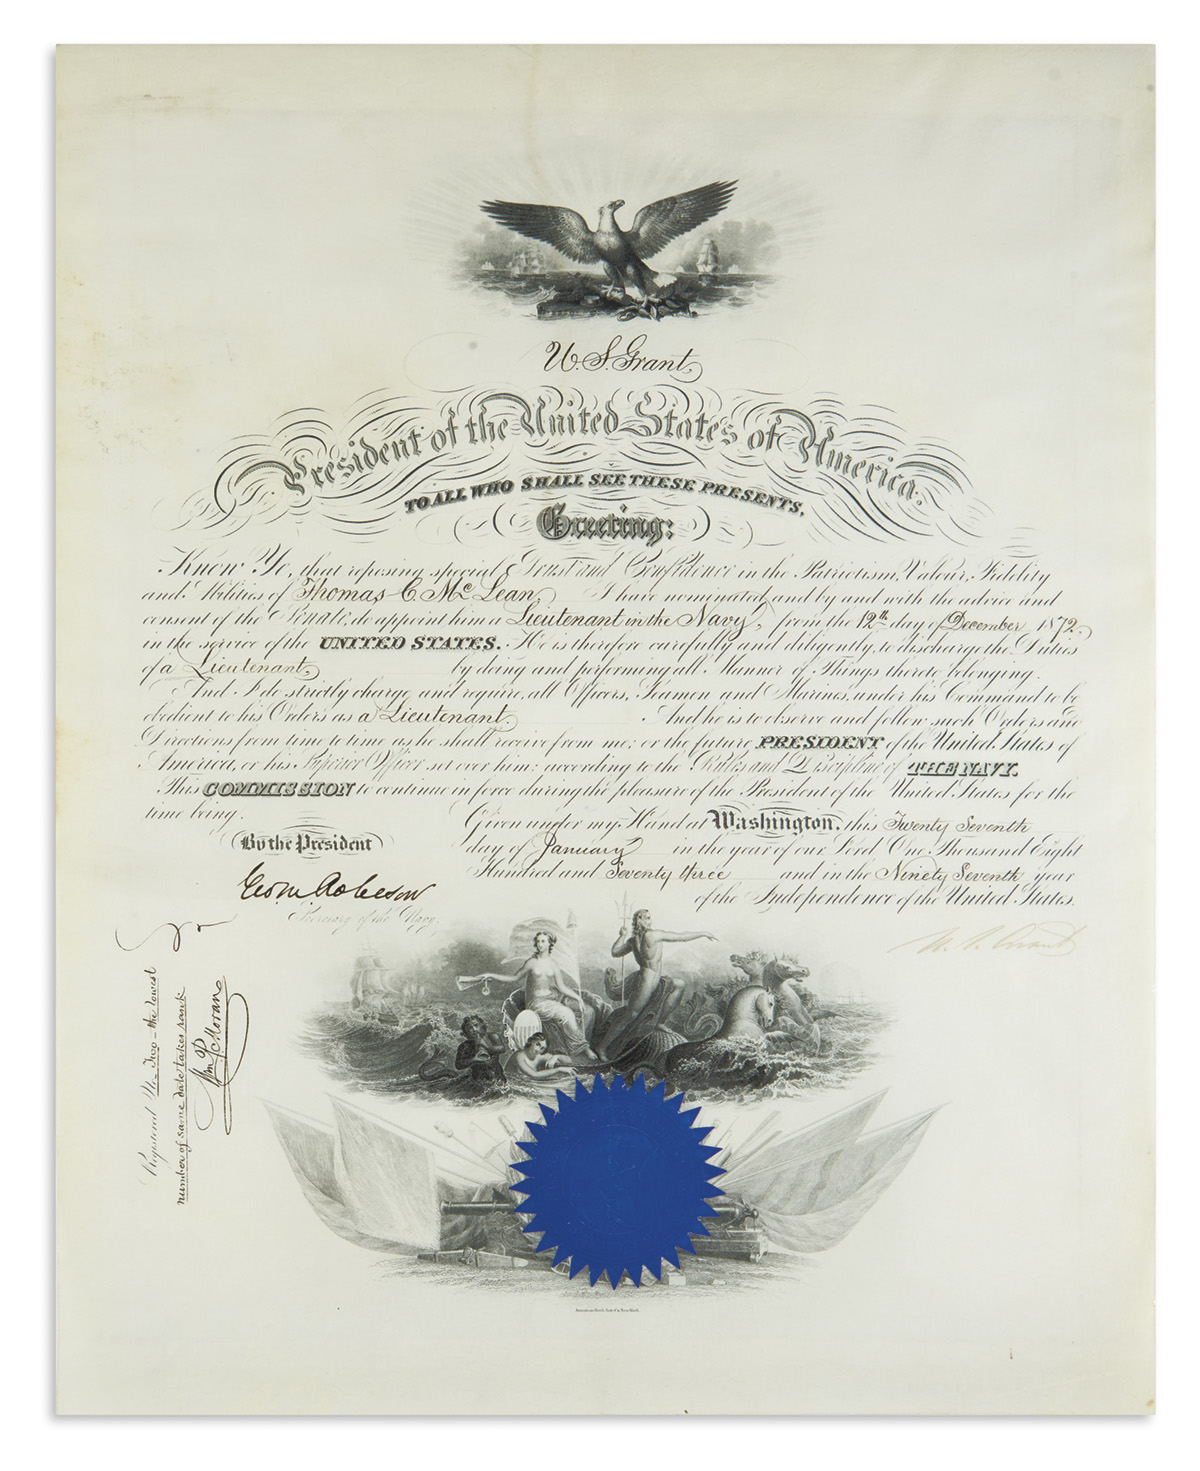 U. S. Grant,
President of the United States of America.
TO ALL WHO SHALL SEE THESE PRESENTS,
Greeting:
Know Ye, that reposing special Trust and Confidence in the Patriotism, Valour, Fidelity
and Abilities of Thomas C. Mc Lean, I have nominated and by and with the advice and
consent of the Senate, do appoint him a Lieutenant in the Navy, from the 12th day of December 1872,
in the service of the UNITED STATES. He is therefore carefully and diligently, to discharge the Duties
of a Lieutenant, by doing and performing all Manner of Things thereto belonging.
And I do strictly charge and require, all Officers, Seamen and Marines, under his Command to be
obedient to his Orders as a Lieutenant. And he is to observe and follow such Orders and
Directions from time to time as he shall receive from me; or the future PRESIDENT of the United States of
America, or his Superior Officer set over him; according to the Rules and Discipline of THE NAVY.
This COMMISSION to continue in force during the pleasure of the President of the United States for the
time being.
Given under my Hand at Washington, this Twenty Seventh
day of January in the year of our Lord One Thousand Eight
Hundred and Seventy three and in the Ninety Seventh year
of the Independence of the United States.
By the President
Geo M Robeson
Secretary of the Navy.
U. S. Grant
Registered No. Two - the lowest
number of same date takes rank
Wm P Moran
American Bank Note Co. New York.